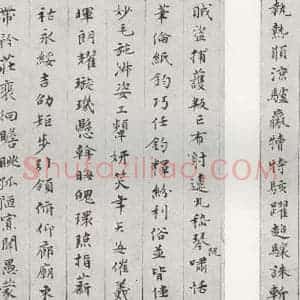 執熱願涼驢騾犢特駭躍超驤誅斬
賊盜捕護叛亡布射遼丸嵇琴嘯阮恬
筆倫紙鈞巧任釣釋紛利俗並皆佳
妙毛施淑姿工顰妍笑年矢每催羲
暉朗耀璇璣懸斡晦魄環照指薪
祜永綏吉劭矩步引領俯仰廊廟束
帶矜莊裵徊瞻眺孤陋寡聞愚蒙
Shufaziliao.com